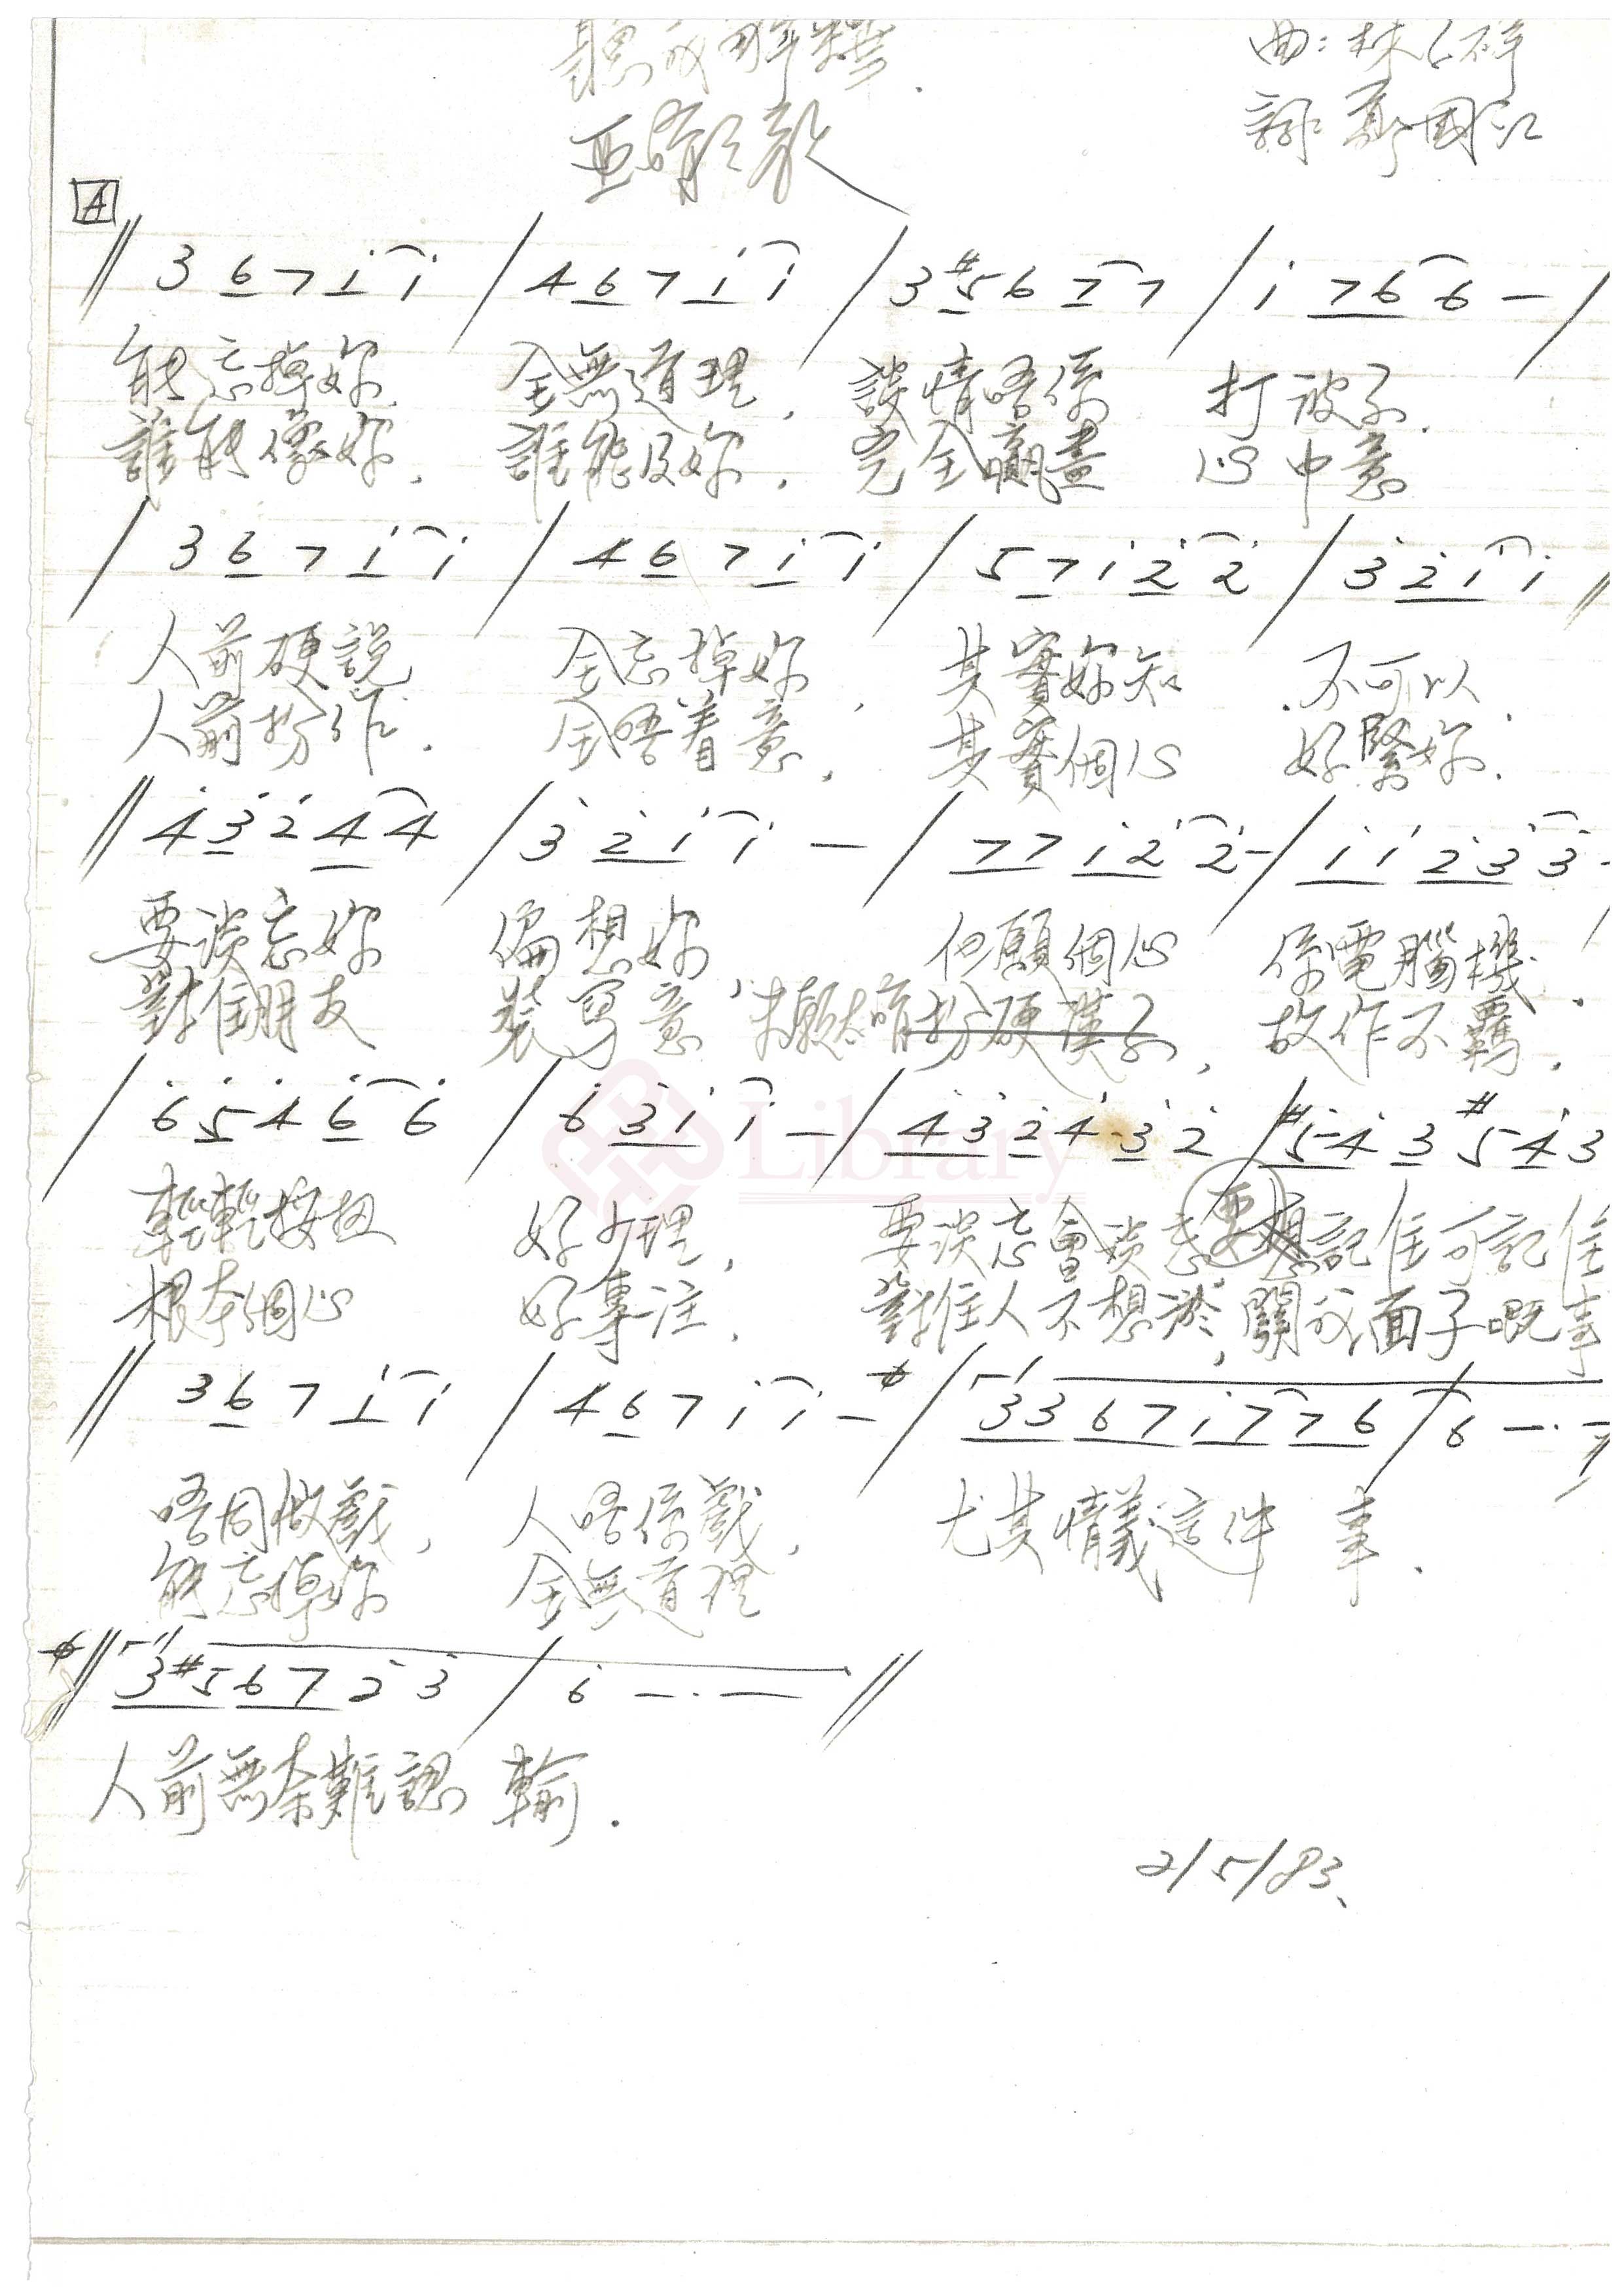 聽我解釋
曲：林
詞：鄭國江
A
‖ 3 6 7 i i / 4 6 7 i i / 3 #5 6 7 7 / i 7 6 6 — /
能忘掉妳. 全無道理. 談情唔係 打被子.
誰能像妳. 誰能及妳. 完全贏盡 心中意
/ 3 6 7 i i / 4 6 7 i i / 5 7 i 2 2 / 3 2 i i ‖
人前硬說 全忘掉妳. 其實妳知 不可以
人前扮作. 全唔着意. 其實個心 好緊妳.
‖ 4 3 2 4 4 / 3 2 i i — / 7 7 i 2 2 — / i i 2 3 3 -
要淡忘妳 偏想妳 但願個心 係電腦機.
對住朋友 裝寫意 扮硬漢子, 故作不羈.
/ 6 5 4 6 6 / 6 3 i i — / 4 3 2 4 3 2 / #5 4 3 #5 4 3
輕輕按扭 好少理, 要淡忘會淡忘 要想記住可記住
根本個心 好專注. 對住人不想認, 關於面子嘅事
‖ 3 6 7 i i / 4 6 7 i i — / 3 3 6 7 i 7 7 6 / 6 — · —
唔同做戲, 人唔係戲, 尤其情義這件 事.
能忘掉妳 全無道理
‖ 3 #5 6 7 2 3 / 6 — · — ‖
人前無奈難認 輸.
2/5/83
Library